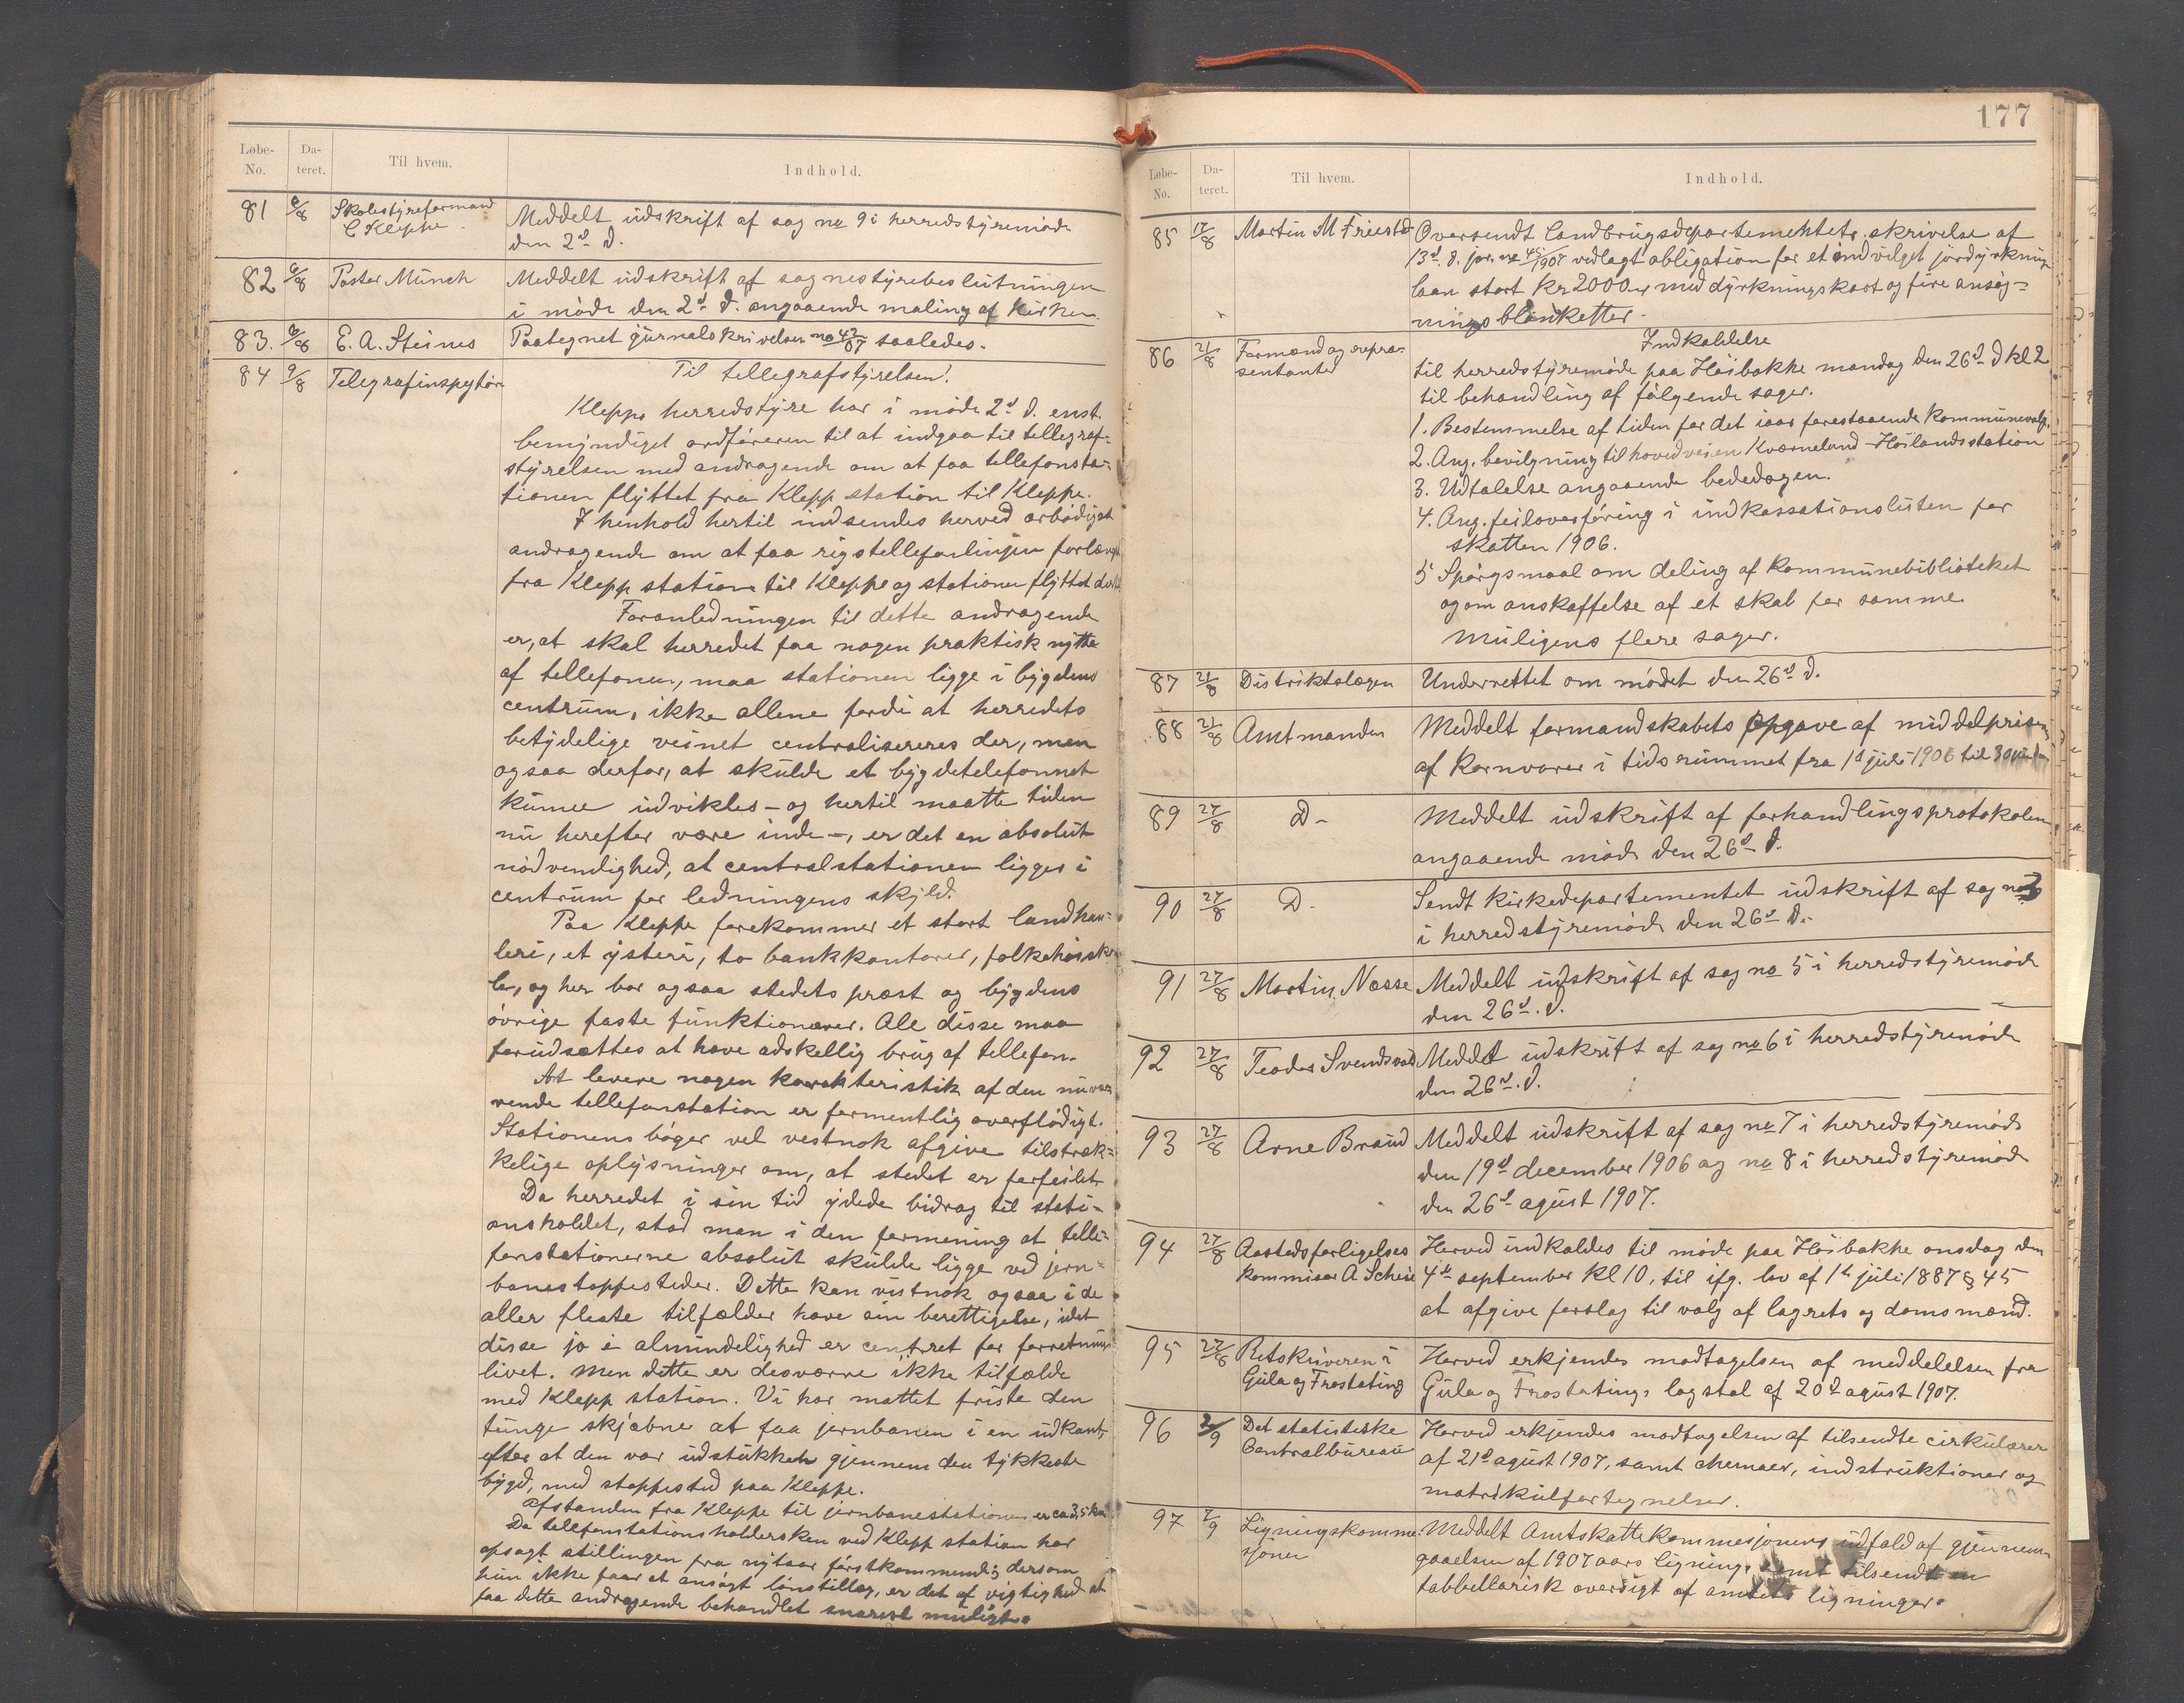 Løbe-No. Dateret. Til hvem. Indhold.
81 6/8 Skolestyreformand E Kleppe Meddelt udskrift af sag no 9 i herredstyremøde
den 2d d.
82 6/8 Pastor Münch Meddelt udskrift af sognestyrebeslutningen
i møde den 2d d. angaaende maling af kirken.
83. 6/8 E. A. Steines Paategnet jurnalskrivelsen no 42/07 saaledes.
84 9/8 Telegrafinspektør Til tellegrafstyrelsen!
Klepps herredstyre har i møde 2d d. enst.
bemyndiget ordføreren til at indgaa til tellegraf-
styrelsen med andragende om at faa tellefonsta-
tionen flyttet fra Klepp station til Kleppe.
I henhold hertil indsendes herved ærbødigst
andragende om at faa rigstellefonlinjen forlænget
fra Klepp station til Kleppe og stationen flyttet
Foranledningen til dette andragende
er, at skal herredet faa nogen praktisk nytte
af tellefonen, maa stationen ligge i bygdens
centrum, ikke allene fordi at herredets
betydelige veinet centraliseres der, men
ogsaa derfor, at skulde et bygdetelefonnet
kunne udvikles – og hertil maatte tiden
nu herefter være inde –, er det en absolut
nødvendighed, at centralstationen ligger i
centrum for ledningens skyld.
Paa Kleppe forekommer et stort landhan-
leri, et ysteri, to bankkontorer, folkehøisko-
le, og her bor ogsaa stedets præst og bygdens
øvrige faste funktionærer. Alle disse maa
forudsættes at have adskellig brug af tellefon.
At levere nogen karakteristik af den nuvær-
rende tellefonstation er formentlig overflødigt.
Stationens bøger vel vestnok afgive tilstræk-
kelige oplysninger om, at stedet er forfeilet.
Da herredet i sin tid ydede bidrag til stati-
onsholdet, stod man i den formening at telle-
fonstationerne absolut skulde ligge ved jern-
banestoppesteder. Dette kan vistnok ogsaa i de
aller fleste tilfælder have sin berettigelse, idet
disse jo i almindelighed er centret for forretnings
livet. Men dette er desværre ikke tilfælde
med Klepp station. Vi har mattet friste den
tunge skjæbne at faa jernbanen i en udkant,
efter at den var udstukket gjennem den tykkeste
bygd, med stoppested paa Kleppe.
Afstanden fra Kleppe til jernbanestationen er ca 3,5 km.
Da telefonstationsholdersken ved Klepp station har
opsagt stillingen fra nytaar førstkommende, dersom
hun ikke faar et ansøgt lønstillæg, er det af vigtighed at
faa dette andragende behandlet snarest muligt.
177
Løbe-No. Dateret. Til hvem. Indhold.
85 17/8 Martin M Friestad Oversendt landbrugsdepartementets skrivelse af
13d. d. jor. no 45/1907 vedlagt obligation for et indvilget jorddyrknings
laan stort Kr 2000,00 med dyrkningskart og fire ansøg-
ningsblanketter.
86 21/8 Formænd og repræsentanter Indkaldelse
til herredstyremøde paa Høibakke mandag den 26d d kl 2
til behandling af følgende sager.
1. Bestemmelse af tiden for det iaar forestaaende kommunevalg.
2. Ang. bevilgning til hovedveien Kværneland – Høilandsstation
3. Udtalelse angaaende bededagen.
4. Ang. feiloverføring i indkassationslisten for
skatten 1906.
5 Spørgsmaal om deling af kommunebiblioteket
og om anskaffelse af et skab for samme.
Muligens flere sager.
87 21/8 Distriktslægen Underrettet om mødet den 26d d.
88 21/8 Amtmanden Meddelt formandskabets opgave af middelprisen
af kornvarer i tidsrummet fra 1d juli 1906 til 30
89 27/8 D– Meddelt udskrift af forhandlingsprotokolen
angaaende møde den 26d d.
90 27/8 D– Sendt kirkedepartementet udskrift af sag no 3
i herredstyremøde den 26d d.
91 27/8 Martin Næsse Meddelt udskrift af sag no 5 i herredstyremøde
den 26d. d.
92 27/8 Teodor Svendsvold Meddelt udskrift af sag no 6 i herredstyremøde
den 26d. d.
93 27/8 Arne Braud Meddelt udskrift af sag no 7 i herredstyremøde
den 19d december 1906 og no 8 i herredstyremøde
den 26d agust 1907.
94 27/8 Aastedsforligelses kommisær A Scheie Herved indkaldes til møde paa Høibakke onsdag den
4de september kl 10, til ifg. lov af 1ste juli 1887 § 45
at afgive forslag til valg af lagrets og domsmænd.
95 27/8 Retskriveren i Gula og Frostating Herved erkjendes modtagelsen af meddelelsen fra
Gula og Frostatings lagstol af 20d agust 1907.
96 2/9 Det statistiske Centralbureau Herved erkjendes modtagelsen af tilsendte cirkulærer
af 21d agust 1907, samt skemaer, indstruktioner og
matrikulfortegnelser.
97 7/9 Ligningskommisjonen Meddelt Amtskattekommesjonens udfald af gjennem
gaaelsen af 1907 aars ligning, samt tilsendt en
tabbellarisk oversigt af amtets ligninger.